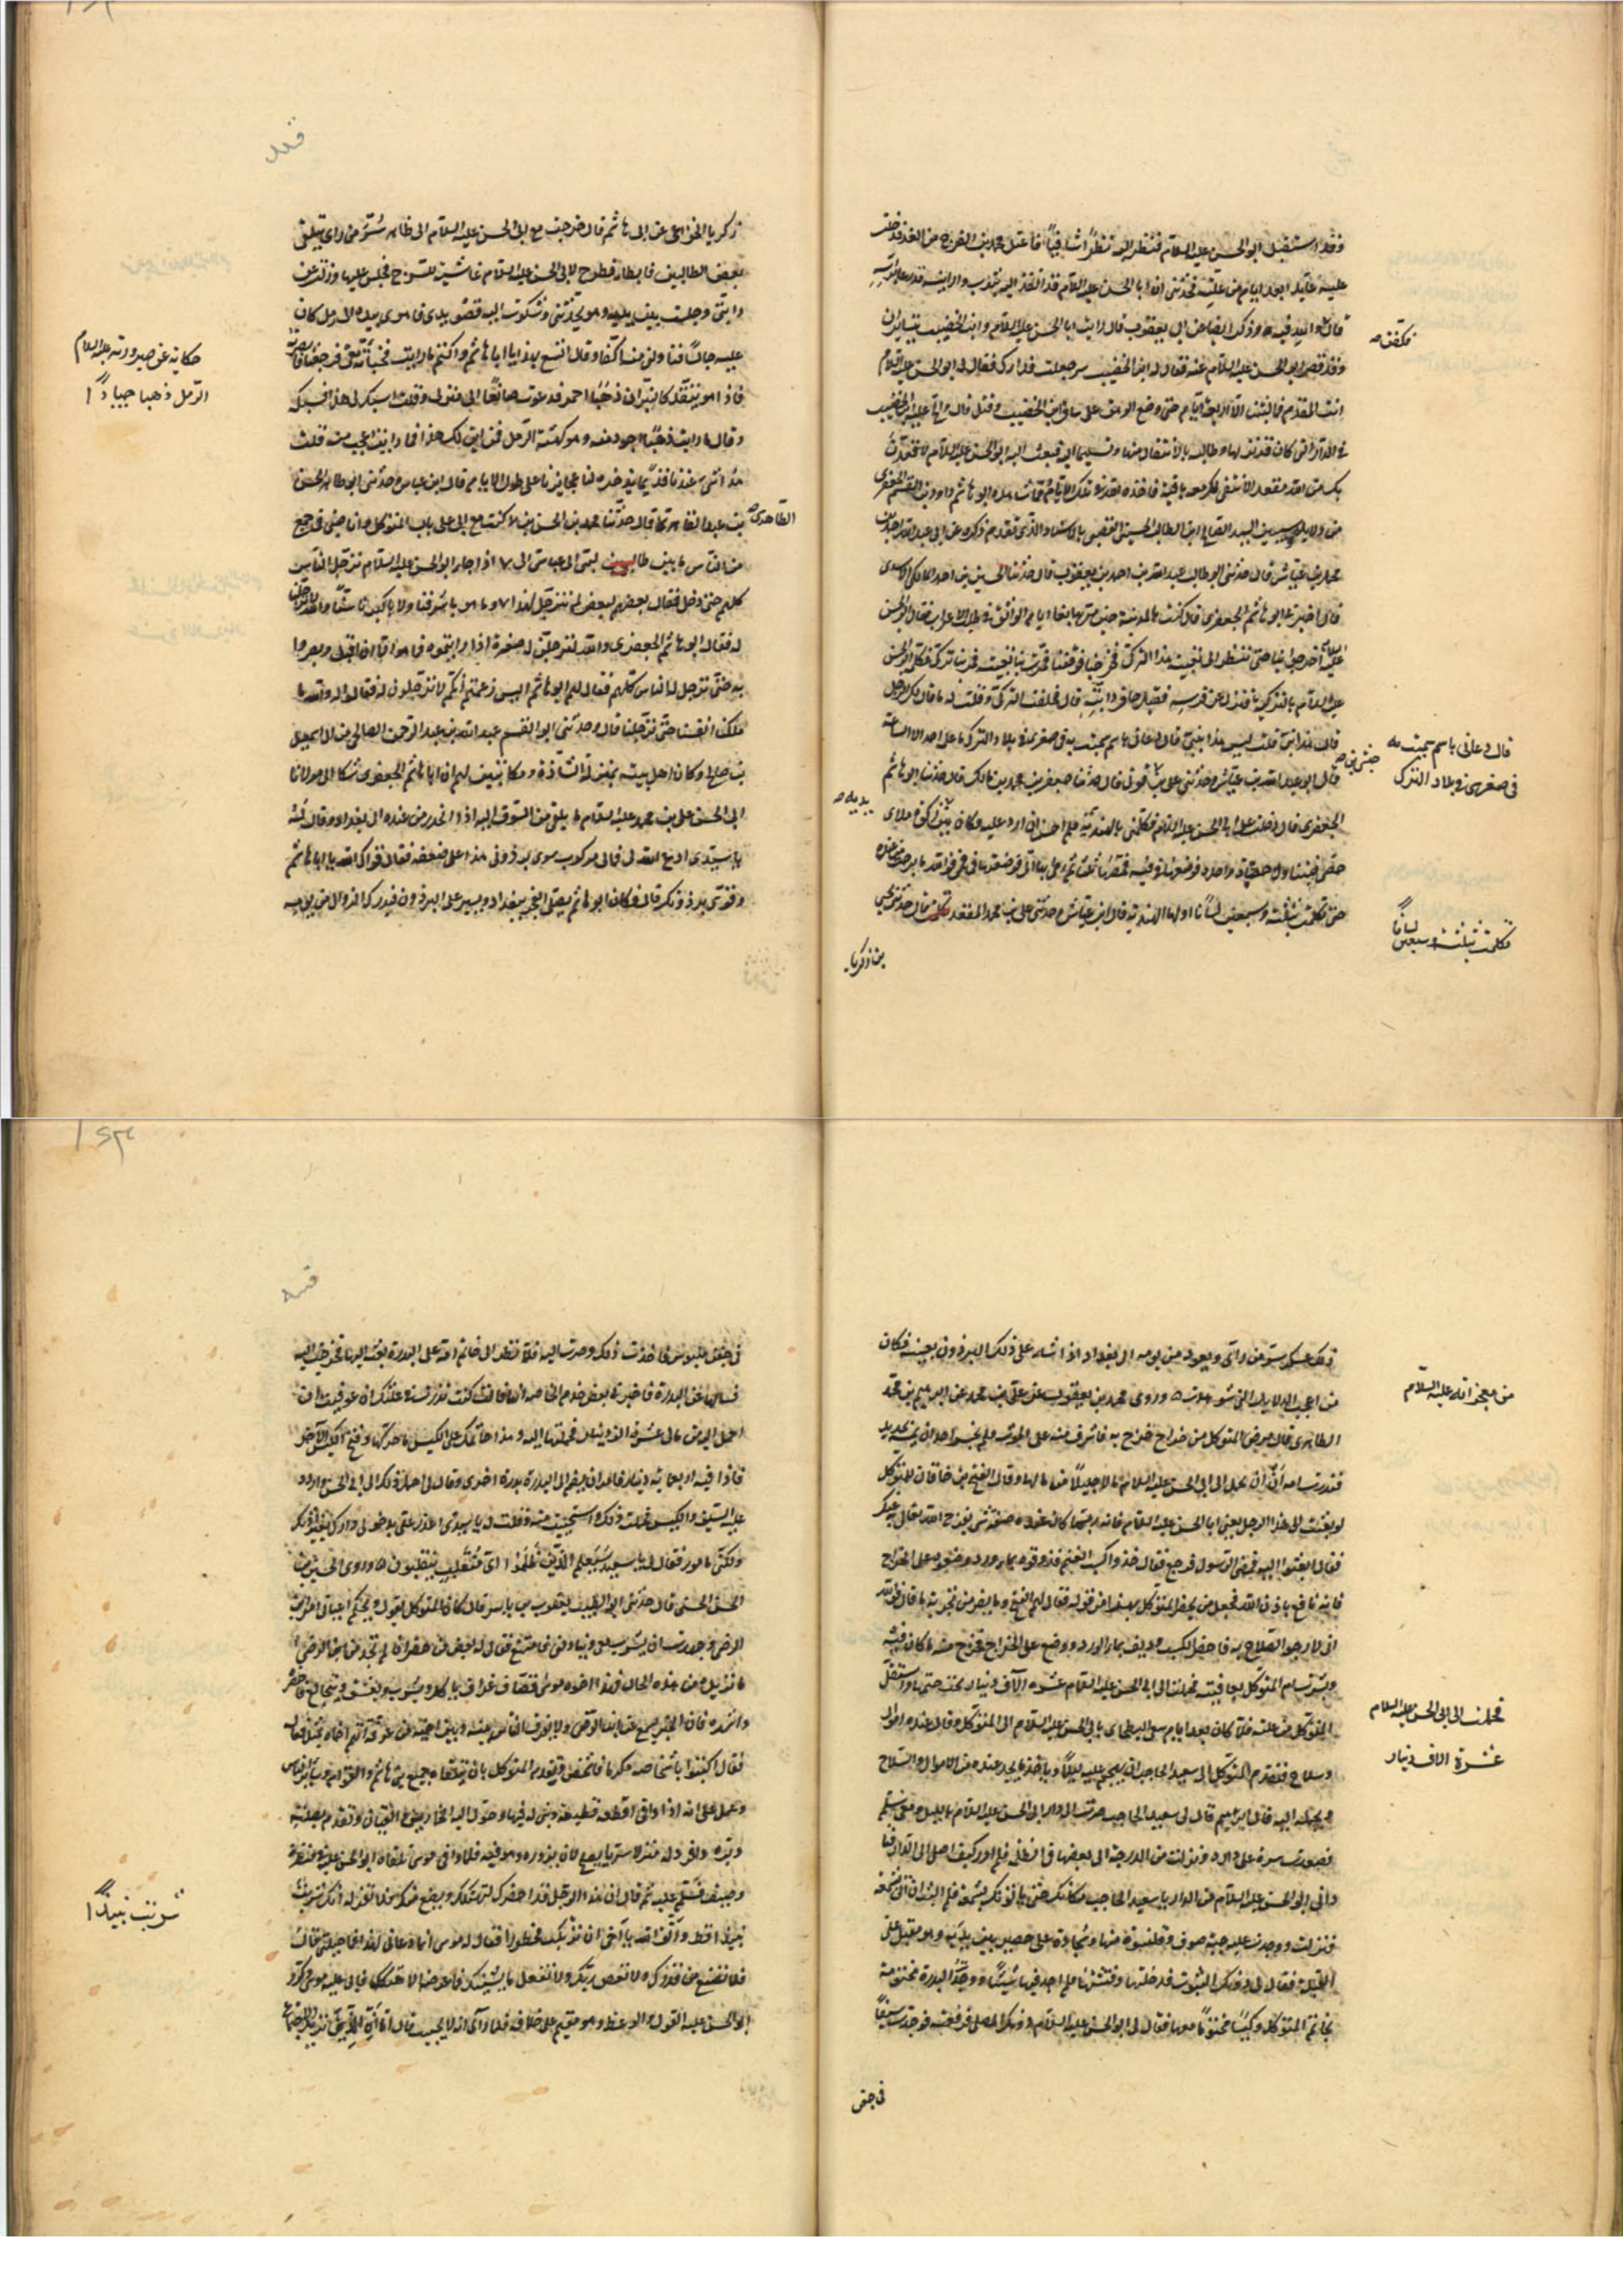 وقد استقبل ابو الحسن عليه السلام فنظر اليه نظرا شافيا فاعتل محمد بن الفرج من الغد فدخلت
عليه عايدا بعد ايام من علته فحدثني ان ابا الحسن عليه السلام قد انفذ اليه بثوب وارانيه مدرجا تحت راسه
قال والله فيه وذكر ايضا عن ابي يعقوب قال رايت ابا الحسن عليه السلام وابن الخضيب يتسايران
وقد قصر ابو الحسن عليه السلام عنه فقال له ابن الخضيب سر جعلت فداك فقال له ابو الحسن عليه السلام
انت المقدم فما لبثنا الا اربعة ايام حتى وضع الوهق على ساق ابن الخضيب وقتل قال والح عليه ابن الخضيب
في الدار التي كان قد نزلها وطالبه بالانتقال منها وتسليمها اليه فبعث اليه ابو الحسن عليه السلام لاقعدن
بك من الله مقعدا لا تبقى لك معه باقية فاخذه الله في تلك الايام
محمد بن عياش قال حدثني ابو طالب عبد الله بن احمد بن يعقوب قال حدثنا الحسين بن احمد المالكي الاسدي
قال اخبرني ابو هاشم الجعفري قال كنت بالمدينة حين مر بها بغا ايام الواثق في طلب الاعراب فقال ابو الحسن
عليه السلام اخرجوا بنا حتى ننظر الى تعبية هذا التركي فخرجنا فوقفنا فمرت بنا تعبيته فمر بنا تركي فكلمه ابو الحسن
عليه السلام بالتركية فنزل عن فرسه فقبل حافر دابته قال فحلفت التركي وقلت له ما قال لك الرجل
قال هذا نبي قلت ليس هذا بنبي قال دعاني باسم سميت به في صغري في بلاد الترك ما علمه احد الا الساعة
قال ابو عبد الله بن عياش وحدثني علي بن حبشي بن قوني قال حدثنا جعفر بن محمد بن مالك قال حدثنا ابو هاشم
الجعفري قال دخلت على ابي الحسن عليه السلام فكلمني بالهندية فلم احسن ان ارد عليه وكان بين يديه ركوة ملاى
حصى فتناول حصاة واحدة فوضعها في فيه فمصها ثلثا ثم رمى بها الي فوضعتها في فمي فوالله ما برحت من عنده
حتى تكلمت بثلثة وسبعين لسانا اولها الهندية قال ابن عياش وحدثني علي بن محمد المقعد قال حدثني يحيى
بن زكريا
فتكفن صه
قال دعاني باسم سميت به
في صغري في بلاد الترك
حبشي بن صه
يديه صه
فكلمت بثلثة وسبعين لسانا
زكريا الخزاعي عن ابي هاشم قال خرجت مع ابي الحسن عليه السلام الى ظاهر سر من راى يتلقى
بعض الطالبيين فابطا فطرح لابي الحسن عليه السلام غاشية السرج فجلس عليها ونزلت عن
دابتي وجلست بين يديه وهو يحدثني وشكوت اليه قصور يدي فاهوى بيده الى رمل كان
عليه جالسا فناولني منه اكفا وقال اتسع بهذا يا ابا هاشم واكتم ما رايت فخباته معي فرجعنا فابصرته
فاذا هو يتقد كالنيران ذهبا احمر فدعوت صائغا الى منزلي وقلت اسبك لي هذا فسبكه
وقال ما رايت ذهبا اجود منه وهو كهيئة الرمل فمن اين لك هذا فما رايت اعجب منه قلت
هذا شيء عندنا قديما تدخره لنا عجايزنا على طول الايام قال ابن عياش وحدثني ابو طاهر الحسن
بن عبد القاهر قال حدثنا محمد بن الحسن كنت مع ابي على باب المتوكل وانا صبي في جمع
من الناس ما بين طالبي الى عباسي الى اذ جاء ابو الحسن عليه السلام ترجل الناس
كلهم حتى دخل فقال بعضهم لبعض لم نترجل لهذا وما هو باشرفنا ولا باكبرنا سنا والله لا ترجلنا
له فقال ابو هاشم الجعفري والله لترجلن له صغرة اذا رايتموه فما هو الا ان اقبل وبصروا
به حتى ترجل له الناس كلهم فقال لهم ابو هاشم اليس زعمتم انكم لا تترجلون له فقالوا له والله ما
ملكنا انفسنا حتى ترجلنا قال وحدثني ابو القسم عبد الله بن عبد الرحمن الصالحي من ال اسمعيل
بن صالح وكان اهل بيته بمنزلة السادة ومكاتبين لهم ان ابا هاشم الجعفري شكا الى مولانا
ابي الحسن علي بن محمد عليه السلام ما يلقى من الشوق اليه اذا انحدر من عنده الى بغداد وقال له
يا سيدي ادع الله لي فما لي مركوب سوى برذوني هذا على ضعفه فقال قواك الله يا ابا هاشم
وقوى برذونك قال فكان ابو هاشم يصلي الفجر ببغداد ويسير على البرذون فيدرك الزوال من يومه
الطاهري
حكاية عن صيرورته عليه السلام
الرمل ذهبا جيادا
ذلك عسكر سر من راى ويعود من يومه الى بغداد اذا شاء على ذلك البرذون بعينه فكان
من اعجب الدلايل التي شوهدت وروى محمد بن يعقوب عن علي بن محمد عن ابراهيم بن محمد
الطاهري قال مرض المتوكل من خراج خرج به فاشرف منه على الموت فلم يجسر احد ان يمسه بحديد
فنذرت امه ان عوفي ان يحمل الى ابي الحسن عليه السلام مالا جليلا من مالها وقال الفتح بن خاقان للمتوكل
لو بعثت الى هذا الرجل يعني ابا الحسن عليه السلام فانه ربما كان عنده صفة شيء يفرج الله تعالى به عنك
فقال ابعثوا اليه فمضى الرسول ورجع فقال خذوا كسب الغنم فذوقوه بماء ورد وضعوه على الخراج
فانه نافع باذن الله فجعل من بحضرة المتوكل يهزا من قوله فقال لهم الفتح وما يضر من تجربة ما قال فوالله
اني لارجو الصلاح به فاحضر الكسب وديف بماء الورد ووضع على الخراج فخرج منه ما كان فيه
وبشرت ام المتوكل بعافيته فحملت الى ابي الحسن عليه السلام عشرة الاف دينار تحت ختمها واستقل
المتوكل من علته فلما كان بعد ايام سعى البطحاني بابي الحسن عليه السلام الى المتوكل وقال عنده اموال
وسلاح فتقدم المتوكل الى سعيد الحاجب ان يهجم عليه ليلا وياخذ ما يجد عنده من الاموال والسلاح
ويحمله اليه قال ابراهيم قال لي سعيد الحاجب صرت الى دار ابي الحسن عليه السلام بالليل ومعي سلم
فصعدت منه على داره ونزلت من الدرجة الى بعضها في الظلمة فلم ادر كيف اصل الى الدار
داني ابو الحسن عليه السلام من الدار يا سعيد الحاجب مكانك حتى ياتوك بشمعة فلم البث ان اتوني بشمعة
فنزلت ووجدت عليه جبة صوف وقلنسوة منها وسجادة على حصير بين يديه وهو مقبل على
القبلة فقال لي دونك البيوت فدخلتها وفتشتها فلم اجد فيها شيئا ووجدت البدرة مختومة
بخاتم المتوكل وكيسا مختوما معها فقال لي ابو الحسن عليه السلام دونك المصلى فرفعته فوجدت سيفا
في جفن
من معجزاته عليه السلام
فحملت الى ابي الحسن عليه السلام
عشرة الاف دينار
في جفن ملبوس فاخذت ذلك وصرت اليه فلما نظر الى خاتم امه على البدرة بعث اليها فخرجت اليه
فسالها عن البدرة فاخبرني بعض خدم الخاصة انها قالت كنت نذرت في علتك ان عوفيت ان
احمل اليه من مالي عشرة الاف دينار فحملتها اليه وهذا خاتمك على الكيس ما حركها وفتح الكيس الاخر
فاذا فيه اربعماية دينار فامر ان يضم الى البدرة بدرة اخرى وقال لي احمل ذلك الى ابي الحسن واردد
عليه السيف والكيس فحملت ذلك واستحييت منه فقلت له يا سيدي اعزز علي بدخولي دارك بغير اذنك
ولكني مامور فقال لي يا سعيد سيعلم الذين ظلموا اي منقلب ينقلبون وروى الحسين بن
الحسن الحسني قال حدثني ابو الطيب يعقوب بن ياسر قال كان المتوكل يقول ويحكم اعياني امر ابن
الرضي وجهدت ان يشرب معي وينادمني فامتنع فقال له بعض من حضر ان لم تجد من ابن الرضى
ما تريده من هذه الحال فهذا اخوه موسى قصاف عزاف ياكل ويشرب ويعشق ويتخالع فاحضره
فقال اكتبوا باشخاصه مكرما فاشخص وتقدم المتوكل بان يتلقاه جميع بني هاشم والقواد وساير الناس
وعمل على انه اذا وافى اقطعه قطيعة وبنى له فيها وحول اليه الخمارين والقيان وتقدم بصلته
وبره وافرد له منزلا سريا يصلح لان يزوره هو فيه فلما وافى موسى تلقاه ابو الحسن عليه السلام في قنطرة
وصيف فسلم عليه ثم قال ان هذا الرجل قد احضرك ليهتكك ويضع منك فلا تقر له انك شربت
نبيذا قط واتق الله يا اخي ان ترتكب محظورا فقال له موسى انما دعاني لهذا فما حيلتي قال
فلا تضع من قدرك ولا تعص ربك ولا تفعل ما يشينك فما غرضه الا هتكك فابى عليه موسى فكرر
ابو الحسن عليه القول والوعظ وهو مقيم على خلافه فلما راى انه لا يجيب قال اما ان الذي تريد الاجتماع
شربت نبيذا